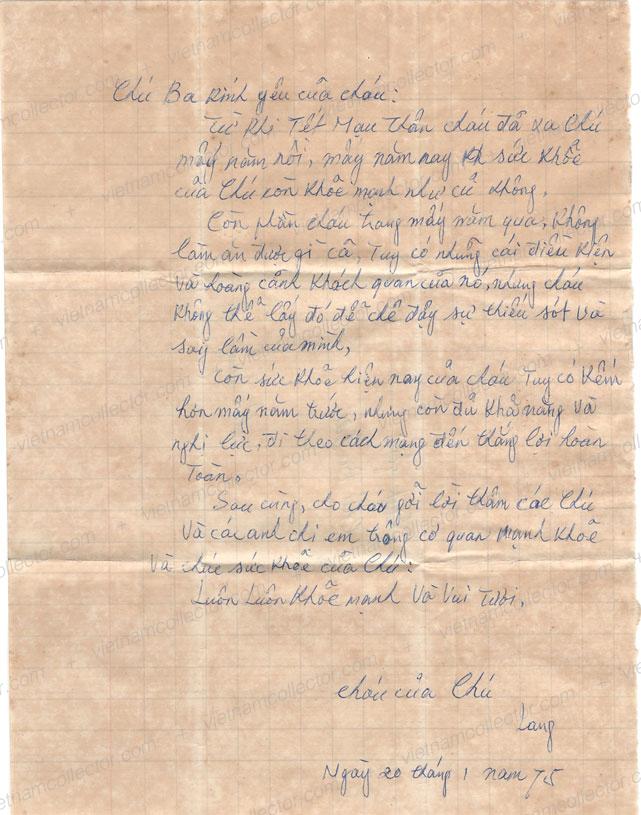 Chú Ba Kính yêu của cháu:
Từ khi Tết Mạu Thân cháu đã xa Chú
mấy năm rồi, mấy năm nay sức khoẽ
của Chú còn khoẽ mạnh như củ không.
Còn phần cháu trong mấy năm qua, không
làm ăn được gì cã, Tuy có những cái điều kiện
Và hoàng cảnh khách quan của nó, nhưng cháu
không thể lấy đó để chê đậy sự thiếu sót và
say lầm của mình,
Còn sức khoẽ hiện nay của cháu Tuy có kém
hơn mấy năm trước, nhưng còn đủ khả năng Và
nghi lực, đi theo cách mạng đến thắng lợi hoàn
Toàn.
Sau cùng, cho cháu gỡi lời thăm các Chú
Và các anh chi em trông cơ quan mạnh khoẽ
Và chúc sức khoẽ của Chú:
Luôn Luôn khoẽ mạnh Và Vui Tươi.
cháu của Chú
Lang
Ngày 20 tháng 1 năm 75
vietnamcollector.com